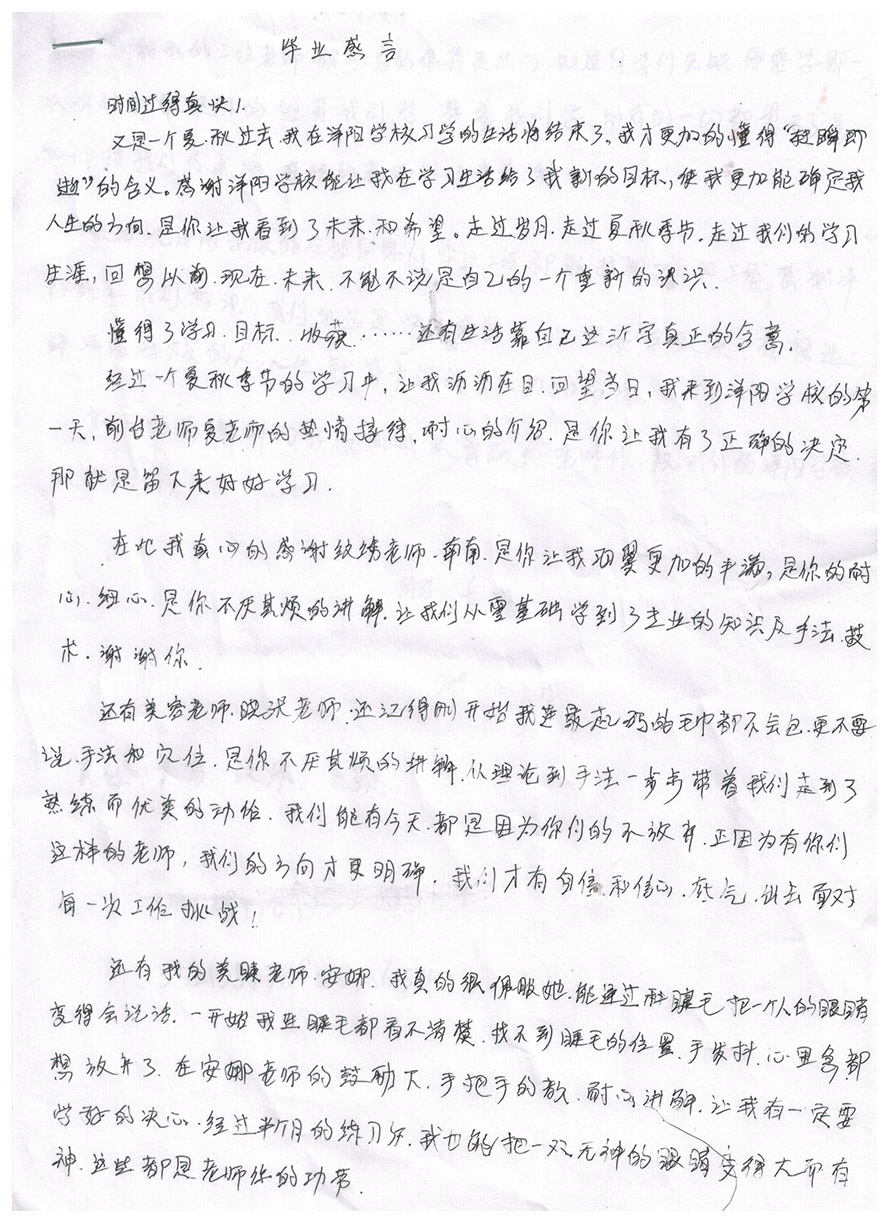 毕业感言
时间过得真快！
又是一个夏.秋过去.我在洋阳学校习学的生活将结束了，我才更加的懂得“转瞬即
逝”的含义。感谢洋阳学校能让我在学习生活给了我新的目标，使我更加能确定我
人生的方向.是你让我看到了未来.和希望。走过岁月.走过夏秋季节.走过我们的学习
生涯，回想以前.现在.未来.不能不说是自己的一个重新的认识.
懂得了学习.目标.收获……还有生活靠自己这几字真正的含意.
经过一个夏秋季节的学习中，让我沥沥在目.回望当日，我来到洋阳学校的第
一天，前台老师夏老师的热情接待，耐心的介绍.是你让我有了正确的决定.
那就是留下来好好学习.
在此我真心的感谢纹绣老师.南南.是你让我羽翼更加的丰满，是你的耐
心.细心.是你不厌其烦的讲解.让我们从零基础学到了专业的知识及手法技
术.谢谢你.
还有美容老师.晓洪老师.还记得刚开始我连最起码的毛巾都不会包.更不要
说.手法和穴位.是你不厌其烦的讲解.从理论到手法一步步带着我们走到了
熟练而优美的动作.我们能有今天.都是因为你们的不放弃.正因为有你们
这样的老师，我们的方向才更明确.我们才有自信.和信心.底气.出去面对
每一次工作挑战！
还有我的美睫老师.安娜.我真的很佩服她.能通过种睫毛把一个人的眼睛
变得会说话.一开始我连睫毛都看不清楚.找不到睫毛的位置.手发抖.心里急都
想放弃了.在安娜老师的鼓励下.手把手的教.耐心讲解.让我有一定要
学好的决心.经过半个月的练习后.我也能把一双无神的眼睛变得大而有
神.这些都是老师你的功劳.